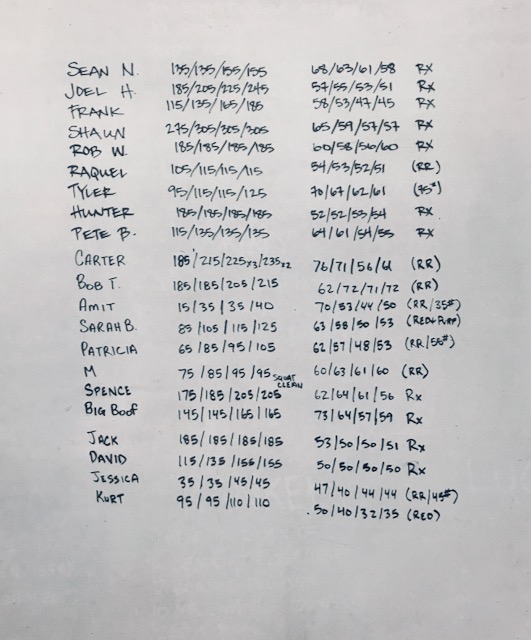 SEAN N. 135/135/155/155 68/63/61/58 RX
JOEL H. 185/205/225/245 57/55/53/51 RX
FRANK 115/135/165/185 58/53/47/45 RX
SHAUN 275/305/305/305 65/59/57/57 RX
ROB W. 185/185/185/185 60/58/56/60 RX
RAQUEL 105/115/115/115 54/53/52/51 (RR)
TYLER 95/115/115/125 70/67/62/61 (75#)
HUNTER 185/185/185/185 52/52/53/54 RX
PETE B. 115/135/135/135 64/61/54/55 RX
CARTER 185/215/225x3/235x2 76/71/56/61 (RR)
BOB T. 185/185/205/215 62/72/71/72 (RR)
AMIT 15/35/35/40 70/53/44/50 (RR/35#)
SARAH B. 85/105/115/125 63/58/50/53 (RED+PURP)
PATRICIA 65/85/95/105 62/57/48/53 (RR/55#)
M 75/85/95/95 SQUAT CLEAN 60/63/61/60 (RR)
SPENCE 175/185/205/205 62/64/61/56 Rx
BIG BOOF 145/145/165/165 73/64/57/59 Rx
JACK 185/185/185/185 53/50/50/51 Rx
DAVID 115/135/155/155 50/50/50/50 Rx
JESSICA 35/35/45/45 47/40/44/44 (RR/45#)
KURT 95/95/110/110 50/40/32/35 (RED)